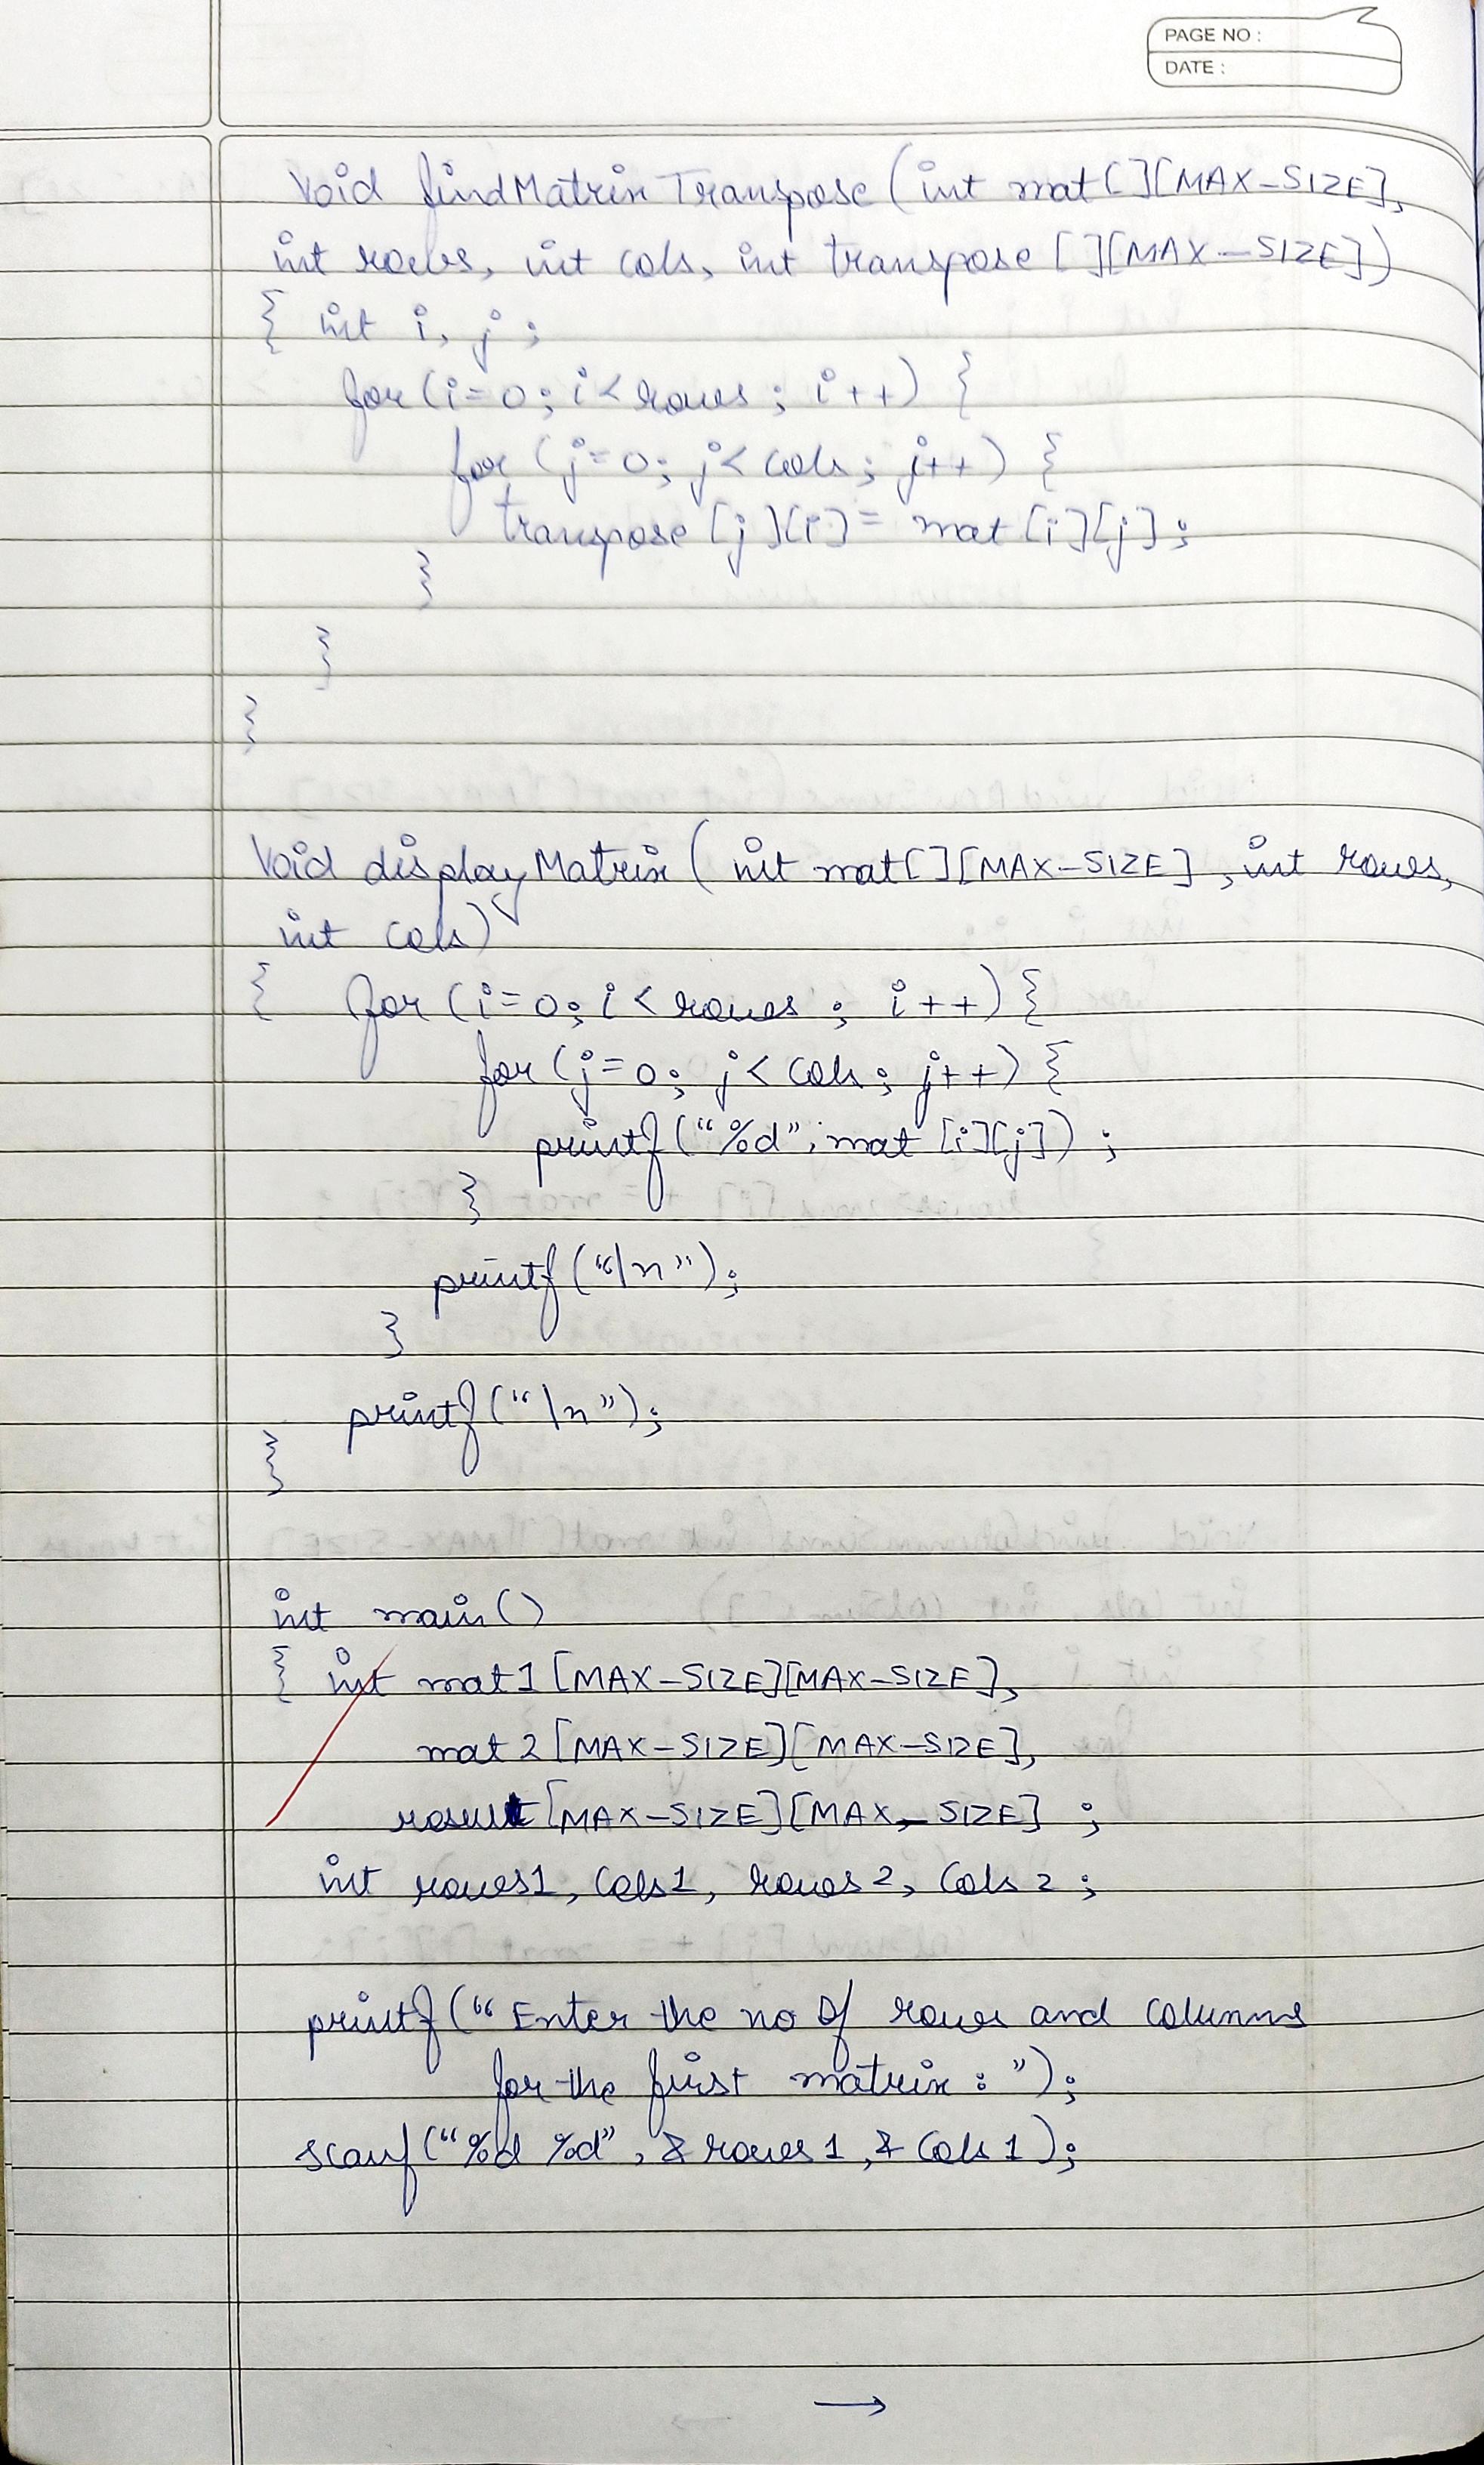 PAGE NO :
DATE :
Void findMatrix Transpose (int mat[][MAX-SIZE],
int rows, int cols, int transpose [][MAX-SIZE])
{ int i, j ;
for (i=0; i<rows ; i++) {
for (j=0; j<cols; j++) {
transpose [j][i] = mat [i][j];
}
}
}
Void displayMatrix ( int mat[][MAX-SIZE], int rows,
int cols)
{ for (i=0; i<rows ; i++) {
for (j=0; j<cols; j++) {
printf("%d", mat [i][j]) ;
}
printf("\n");
}
printf("\n");
}
int main()
{ int mat1 [MAX-SIZE][MAX-SIZE],
mat2 [MAX-SIZE][MAX-SIZE],
result [MAX-SIZE][MAX-SIZE] ;
int rows1, cols1, rows2, cols2 ;
printf("Enter the no of rows and columns
for the first matrix : ");
scanf("%d %d", &rows1, &cols1);
→